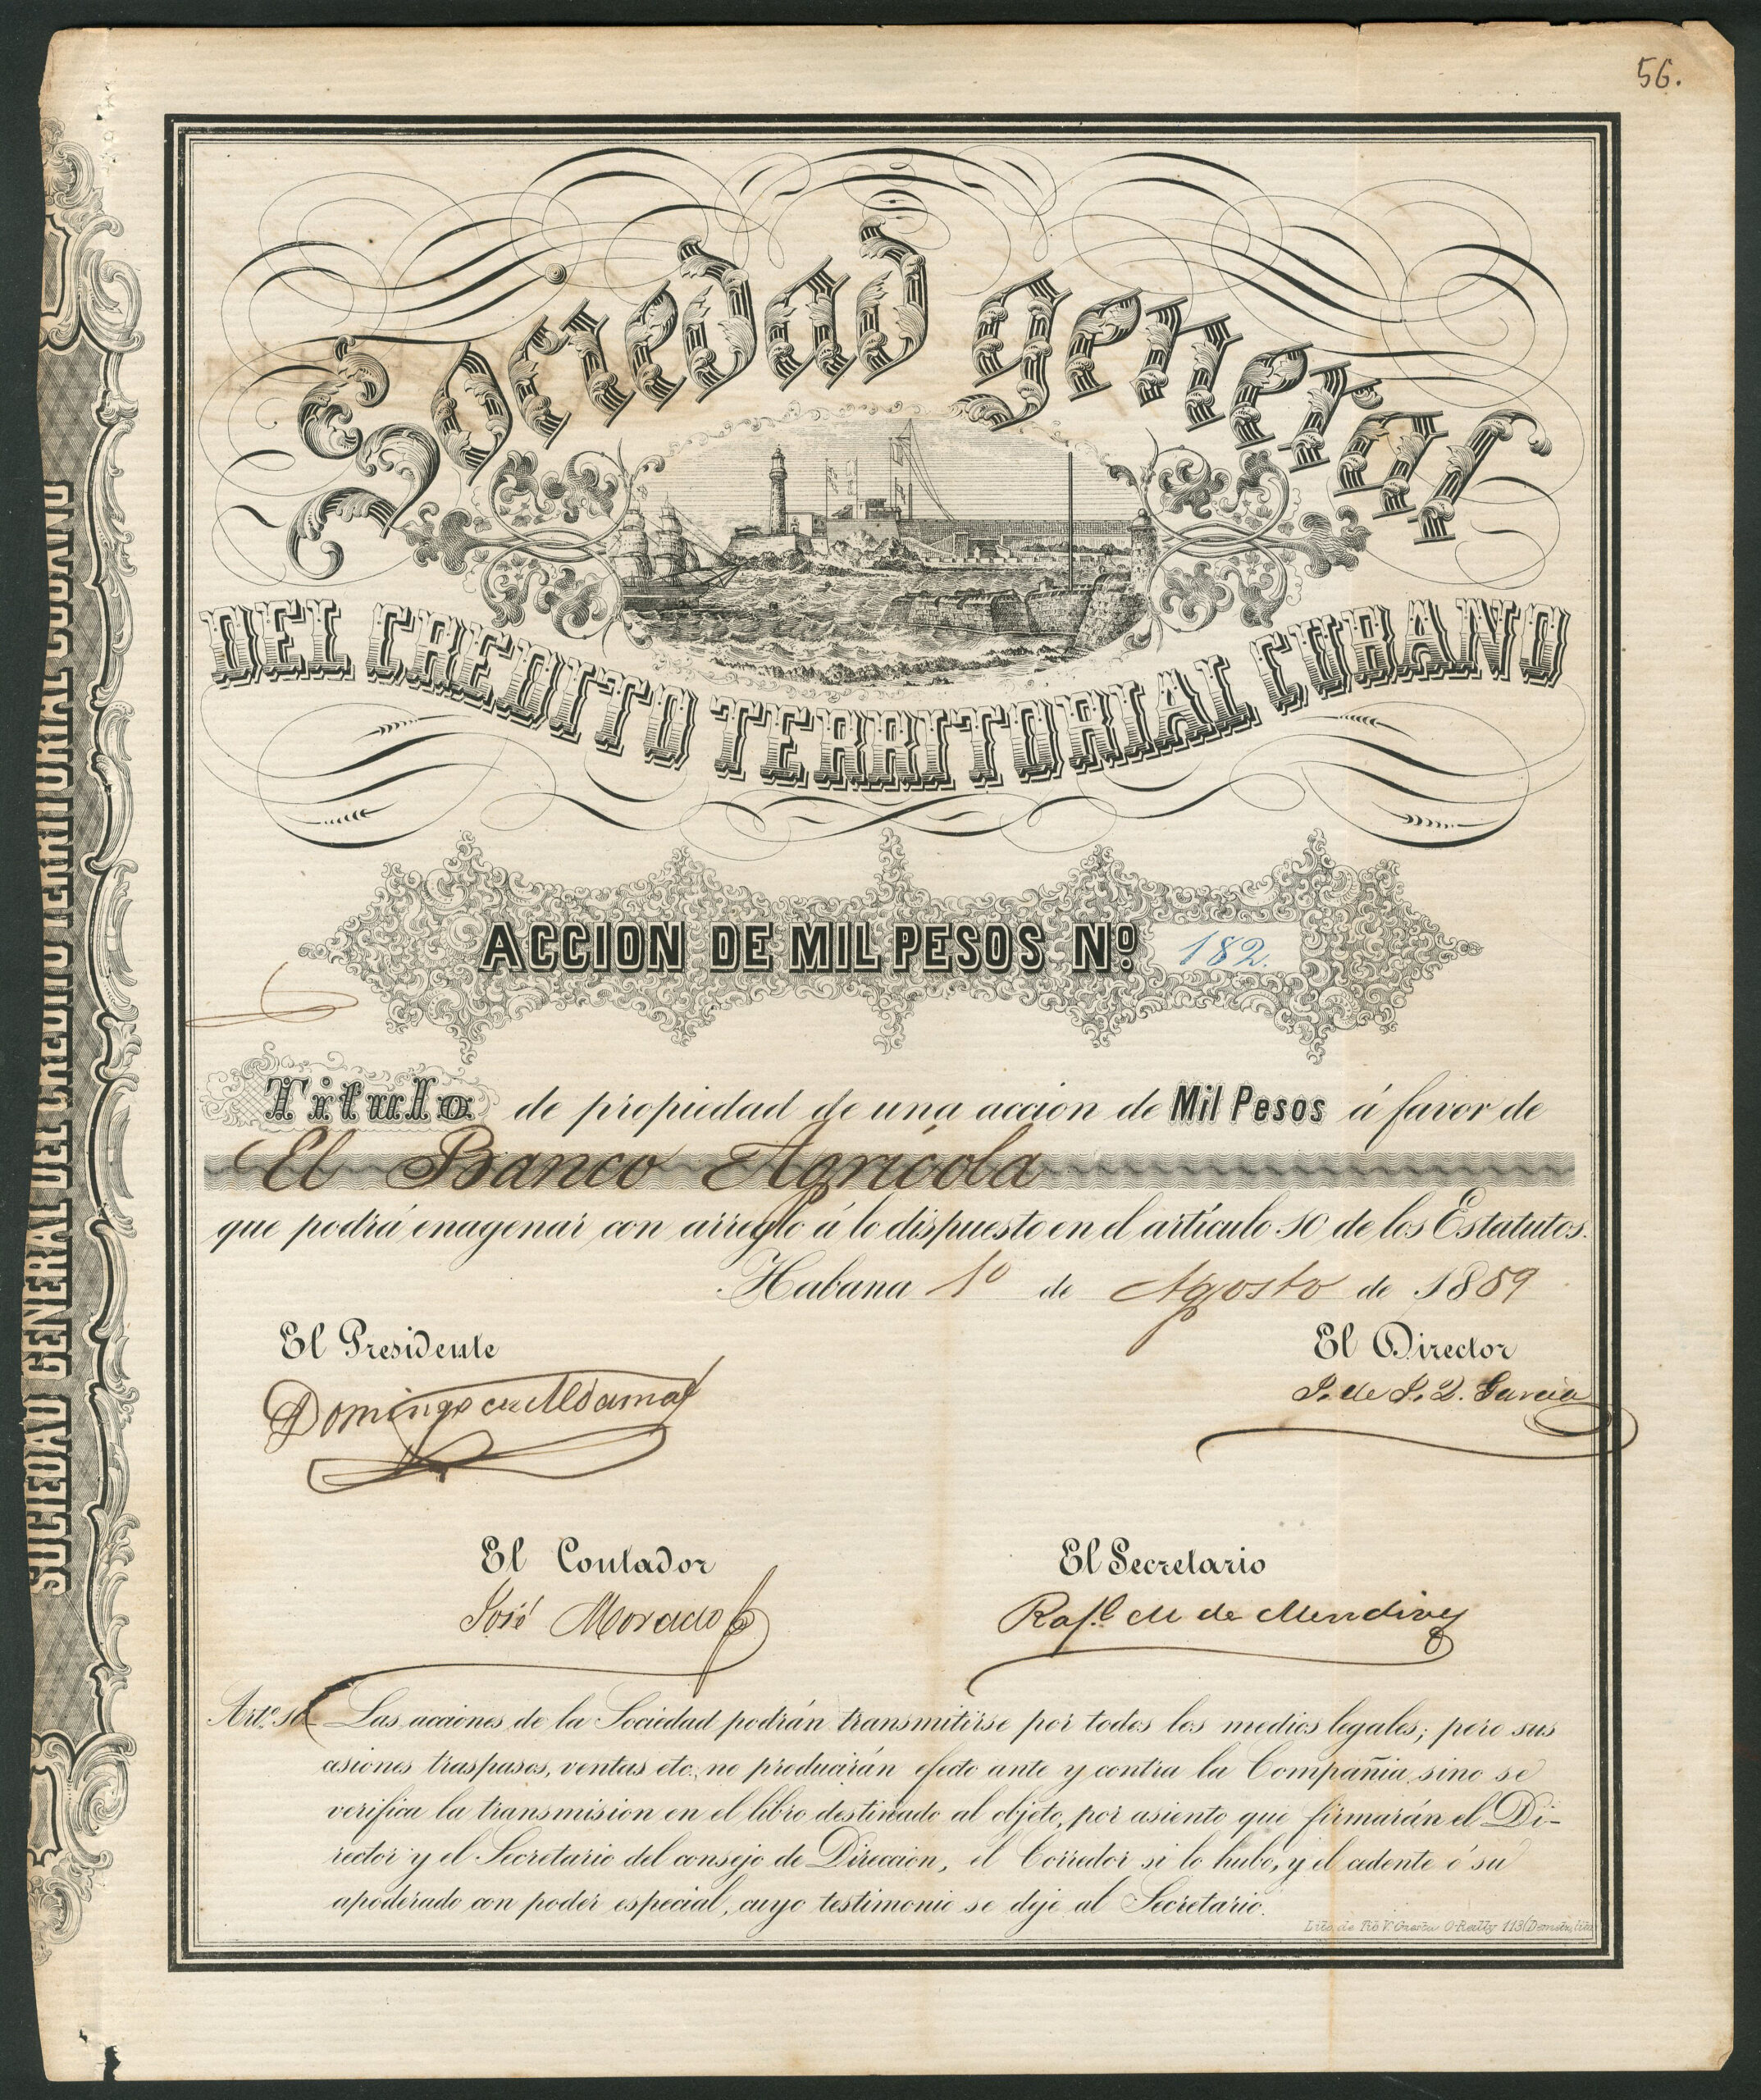 56.
Sociedad general
DEL CREDITO TERRITORIAL CUBANO
ACCION DE MIL PESOS Nº 182.
Titulo de propiedad de una accion de Mil Pesos á favor de
El Banco Agrícola
que podrá enagenar con arreglo á lo dispuesto en el artículo 10 de los Estatutos.
Habana 1º de Agosto de 1859
El Presidente
El Director
Domingo de Aldama
P. de P. D. Garcia
El Contador
El Secretario
José Morado
Raf.l M de Mendive
Artº 10 Las acciones de la Sociedad podrán transmitirse por todos los medios legales; pero sus
cesiones traspasos, ventas etc., no producirán efecto ante y contra la Compañia, sino se
verifica la transmision en el libro destinado al objeto, por asiento que firmarán el Di-
rector y el Secretario del consejo de Direccion, el Corredor si lo hubo, y el cedente ó su
apoderado con poder especial, cuyo testimonio se deje al Secretario.
Lito. de Tió V. Cuesta O-Reilly 113
SOCIEDAD GENERAL DEL CREDITO TERRITORIAL CUBANO